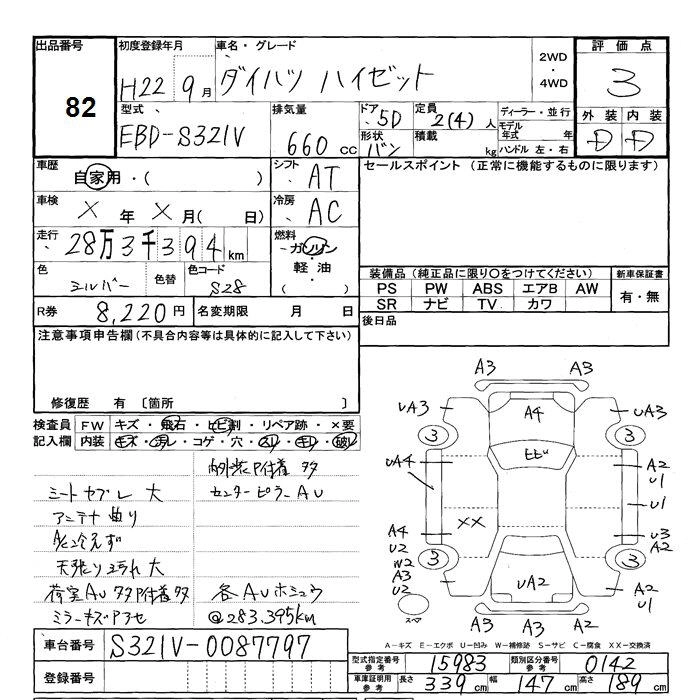 出品番号
82
初度登録年月
H22 9月
車名・グレード
ダイハツ ハイゼット
2WD
・
4WD
評価点
3
外装 内装
D D
型式
EBD-S321V
排気量
660 cc
ドア 5D
形状 バン
定員 2(4)人
積載 kg
ディーラー・並行
モデル年式 年
ハンドル 左・右
車歴
自家用・( )
シフト AT
セールスポイント (正常に機能するものに限ります)
車検
X 年 X 月( 日)
冷房 AC
走行
28万3千394km
燃料
ガソリン
軽油・
( )
色
シルバー
色替
色コード
S28
装備品(純正品に限り○をつけてください)
新車保証書
PS PW ABS エアB AW
SR ナビ TV カワ
有・無
R券 8,220円
名変期限 月 日
後日品
注意事項申告欄(不具合内容等は具体的に記入して下さい)
修復歴 有 〔箇所 〕
検査員記入欄
FW キズ・飛石・ヒビ割・リペア跡・×要
内装 キズ・汚レ・コゲ・穴・スリ・キレ・破レ
内外装P付着 多
シートヤブレ 大
センターピラーAU
アンテナ曲り
A/C冷えず
天張り汚れ大
荷室AU多P付着多
各AUホシュウ
ミラーキズアセ
@283.395km
A3 A3
UA3 A4 UA3
3 3
UA4 A2
U1
U1
XX
A4
U2
W2
A3
U2
U3
A2
3 3
UA2
A2
U1
スペア
A3 A3 A2
A－キズ E－エクボ U－凹み W－補修跡 S－サビ C－腐食 XX－交換済
車台番号 S321V-0087797
登録番号
型式指定番号参考 15983
類別区分番号参考 0142
車庫証明用参考 長さ 339cm 幅 147cm 高さ 189cm